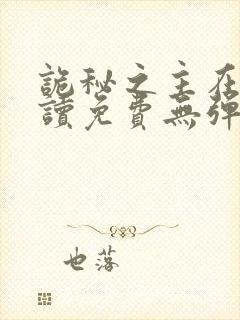 詭秘之主在
讀免費無彈
也落